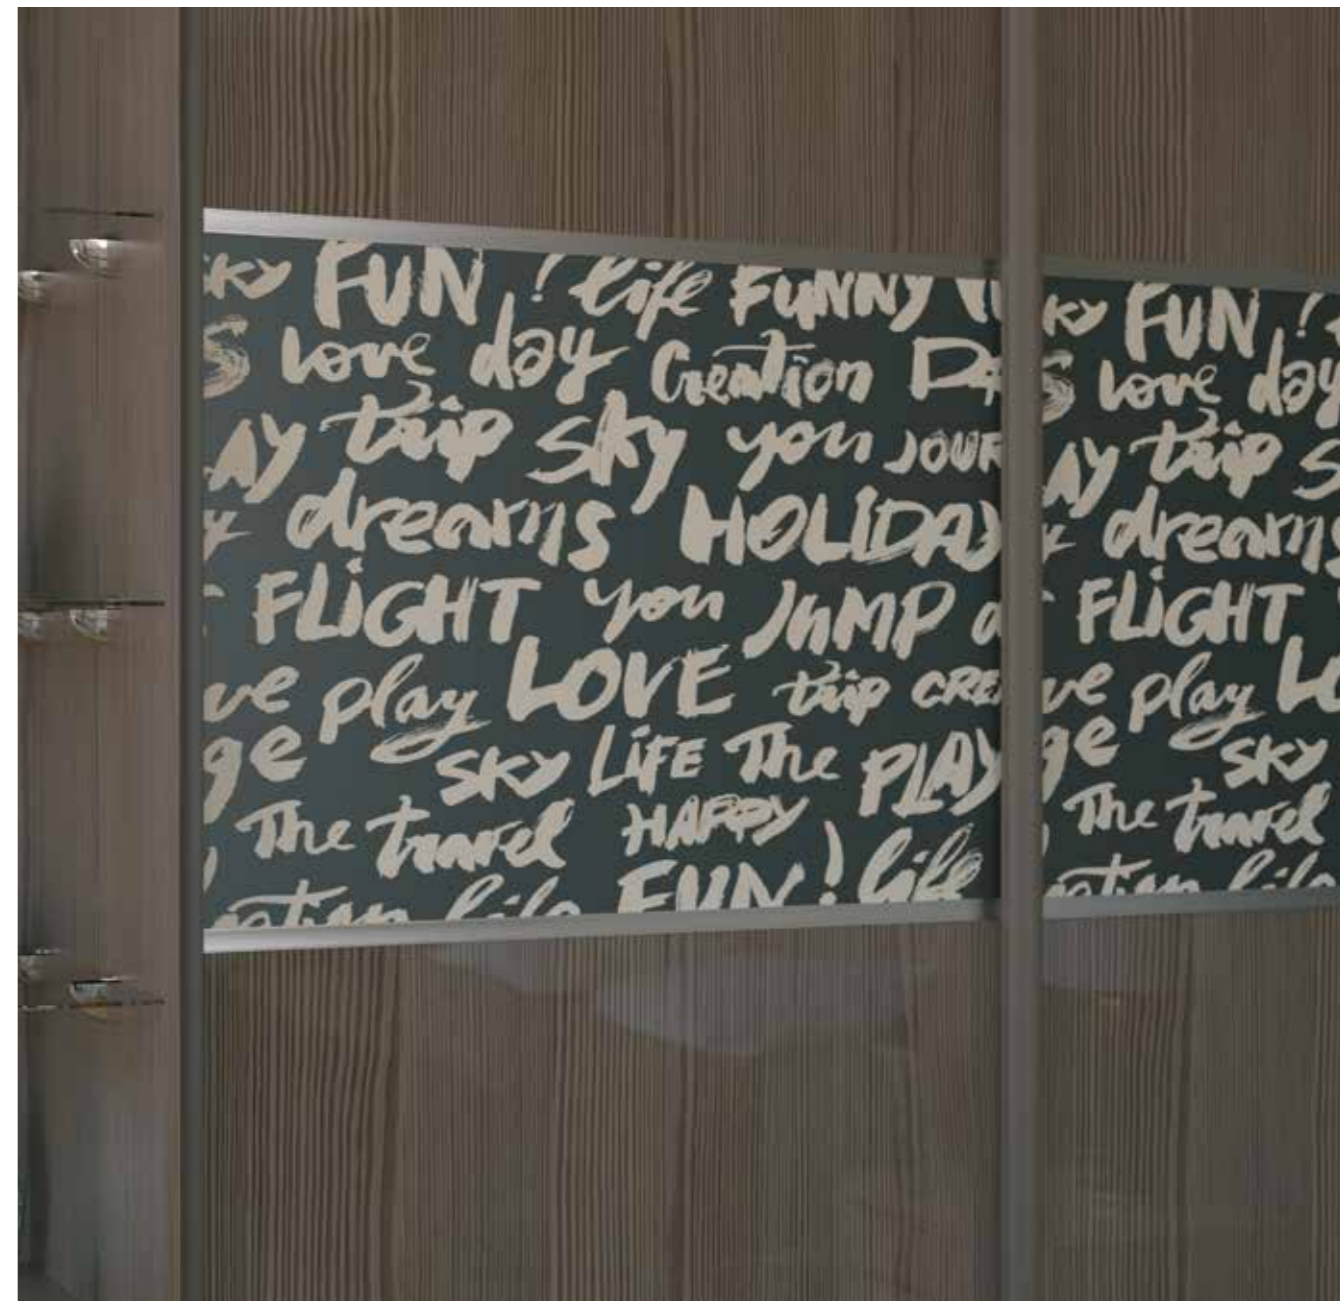 SKY FUN ! life FUNNY
love day Creation DA
AY trip sky you JOUR
dreams HOLIDAY
FLIGHT you JUMP a
ve play LOVE trip CREA
ge SKY LIFE The PLAY
The travel HAPPY
ation life FUN ! life
KY FUN !
S love day
AY trip S
dreams
FLIGHT
ve play LO
ge SKY
The travel
ation life